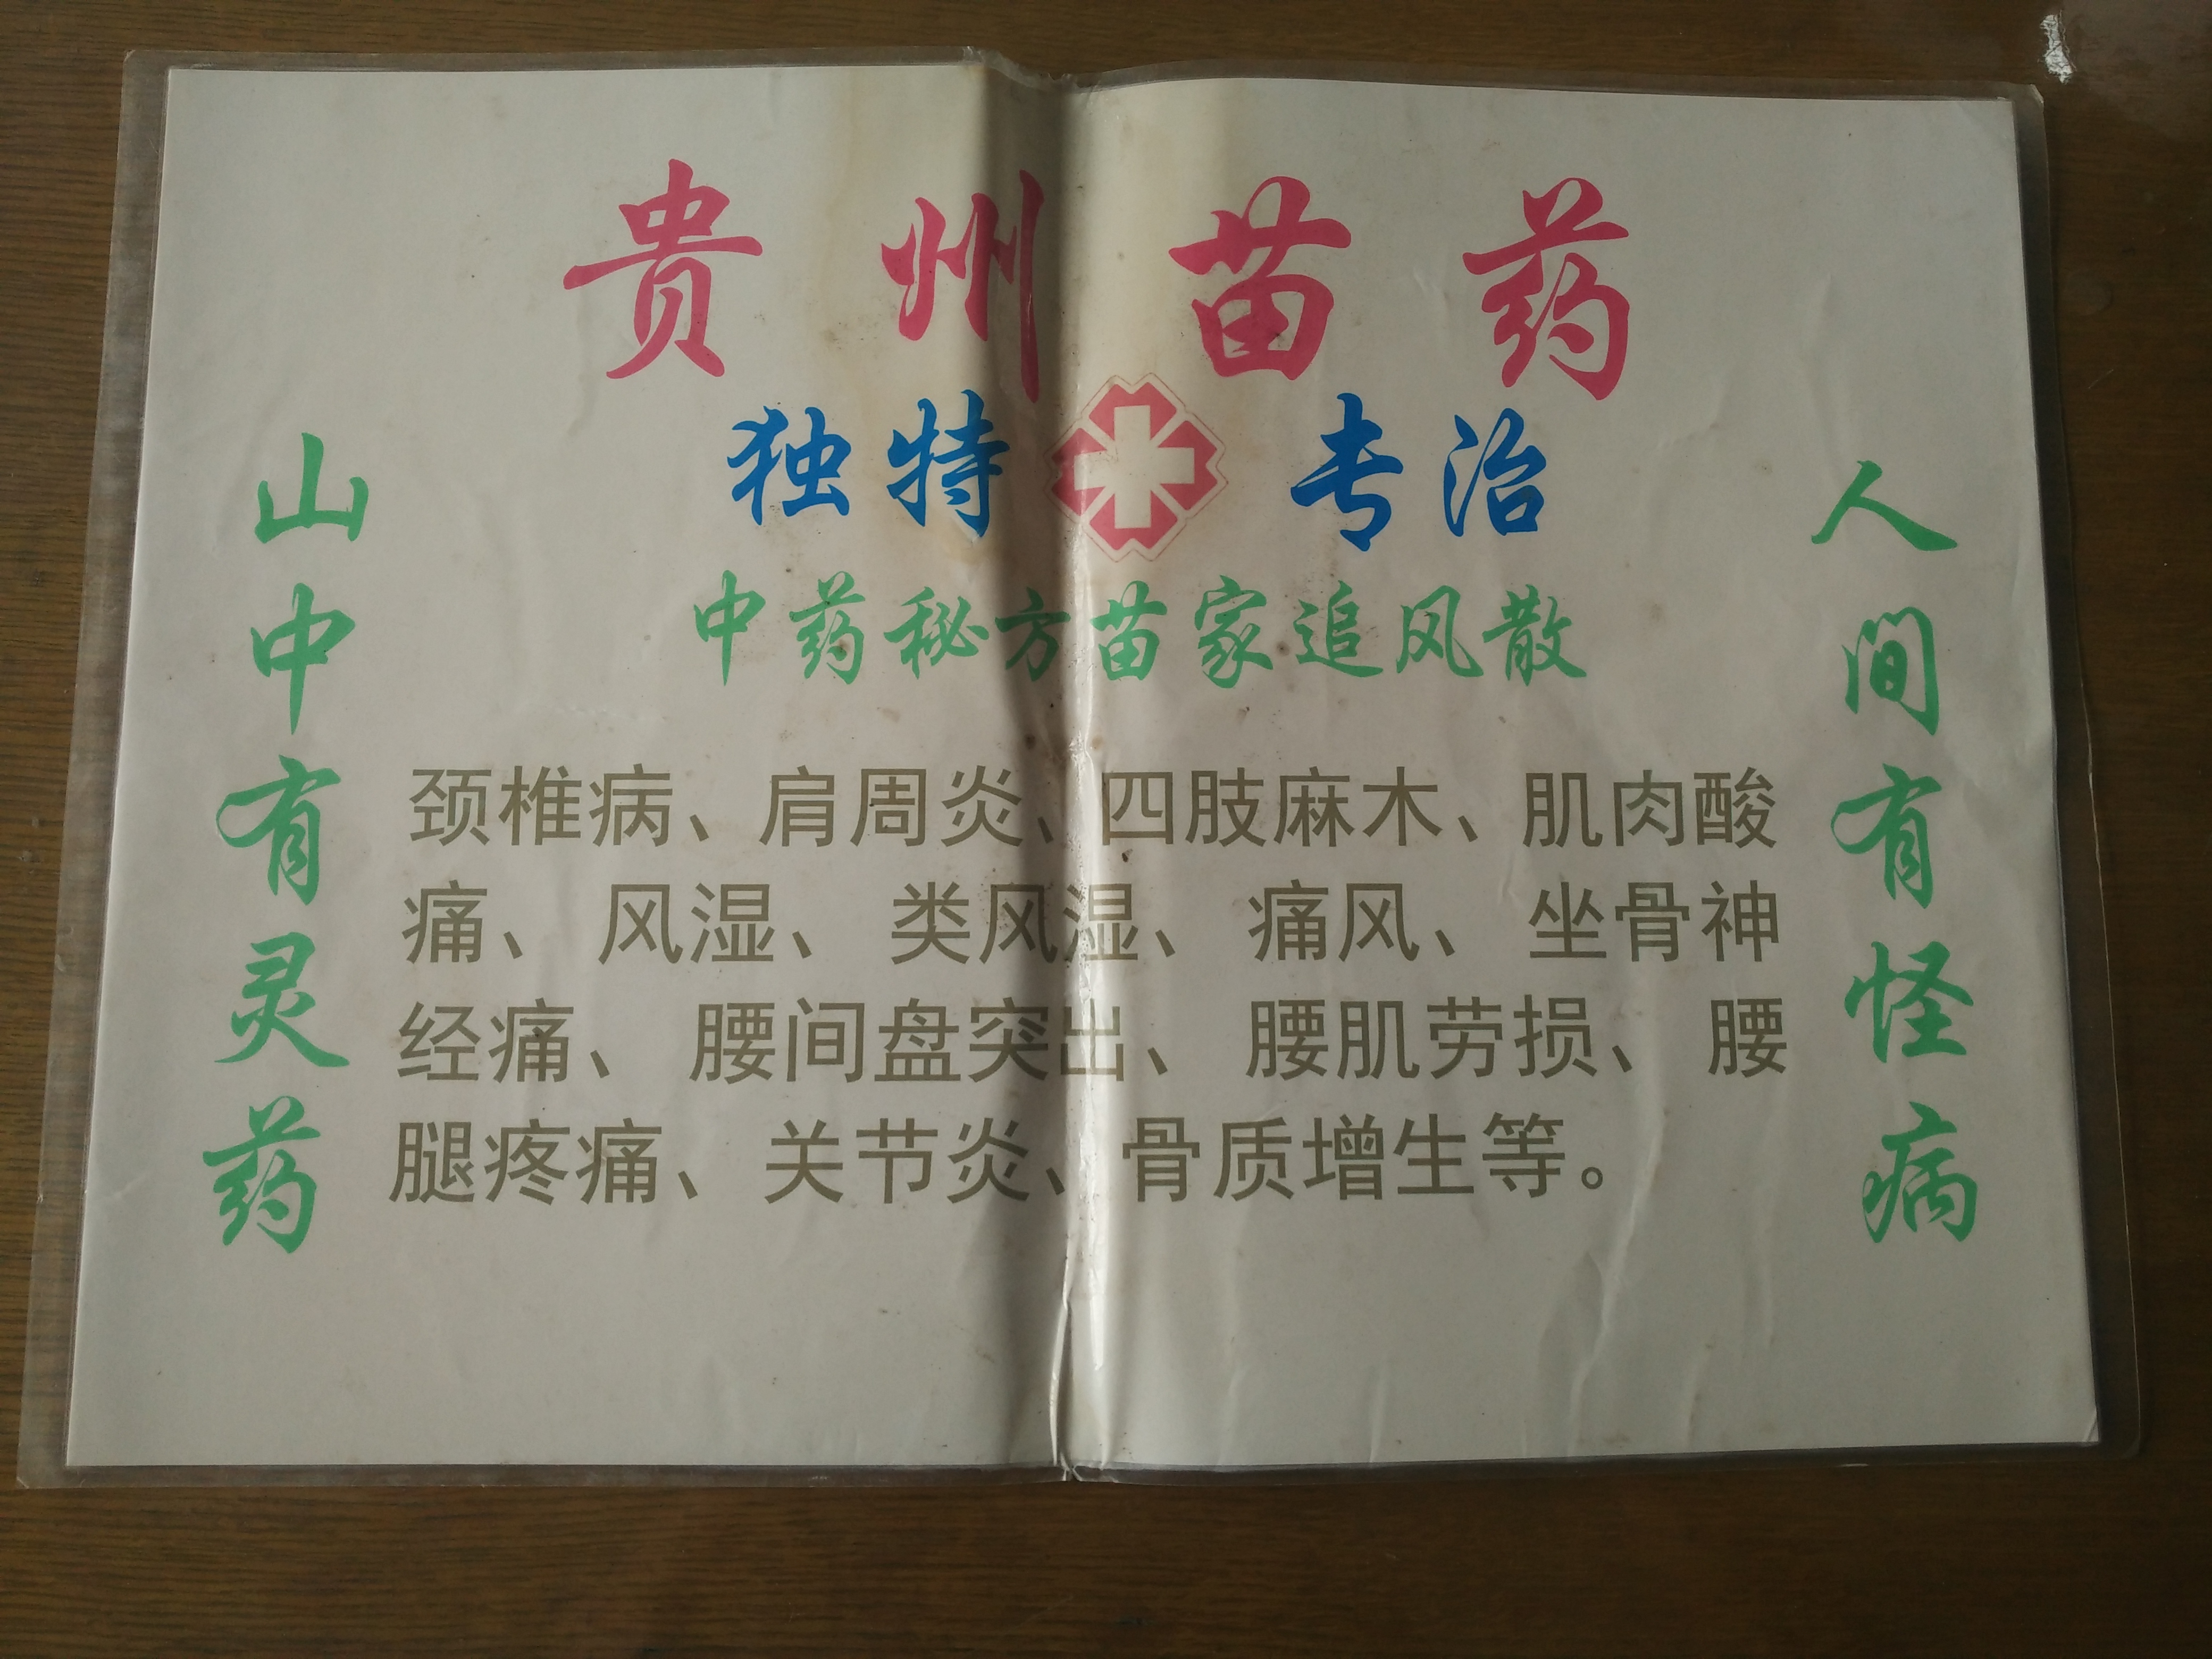 贵州苗药
独特 专治
中药秘方苗家追风散
山中有灵药
颈椎病、肩周炎、四肢麻木、肌肉酸
痛、风湿、类风湿、痛风、坐骨神
经痛、腰间盘突出、腰肌劳损、腰
腿疼痛、关节炎、骨质增生等。
人间有怪病